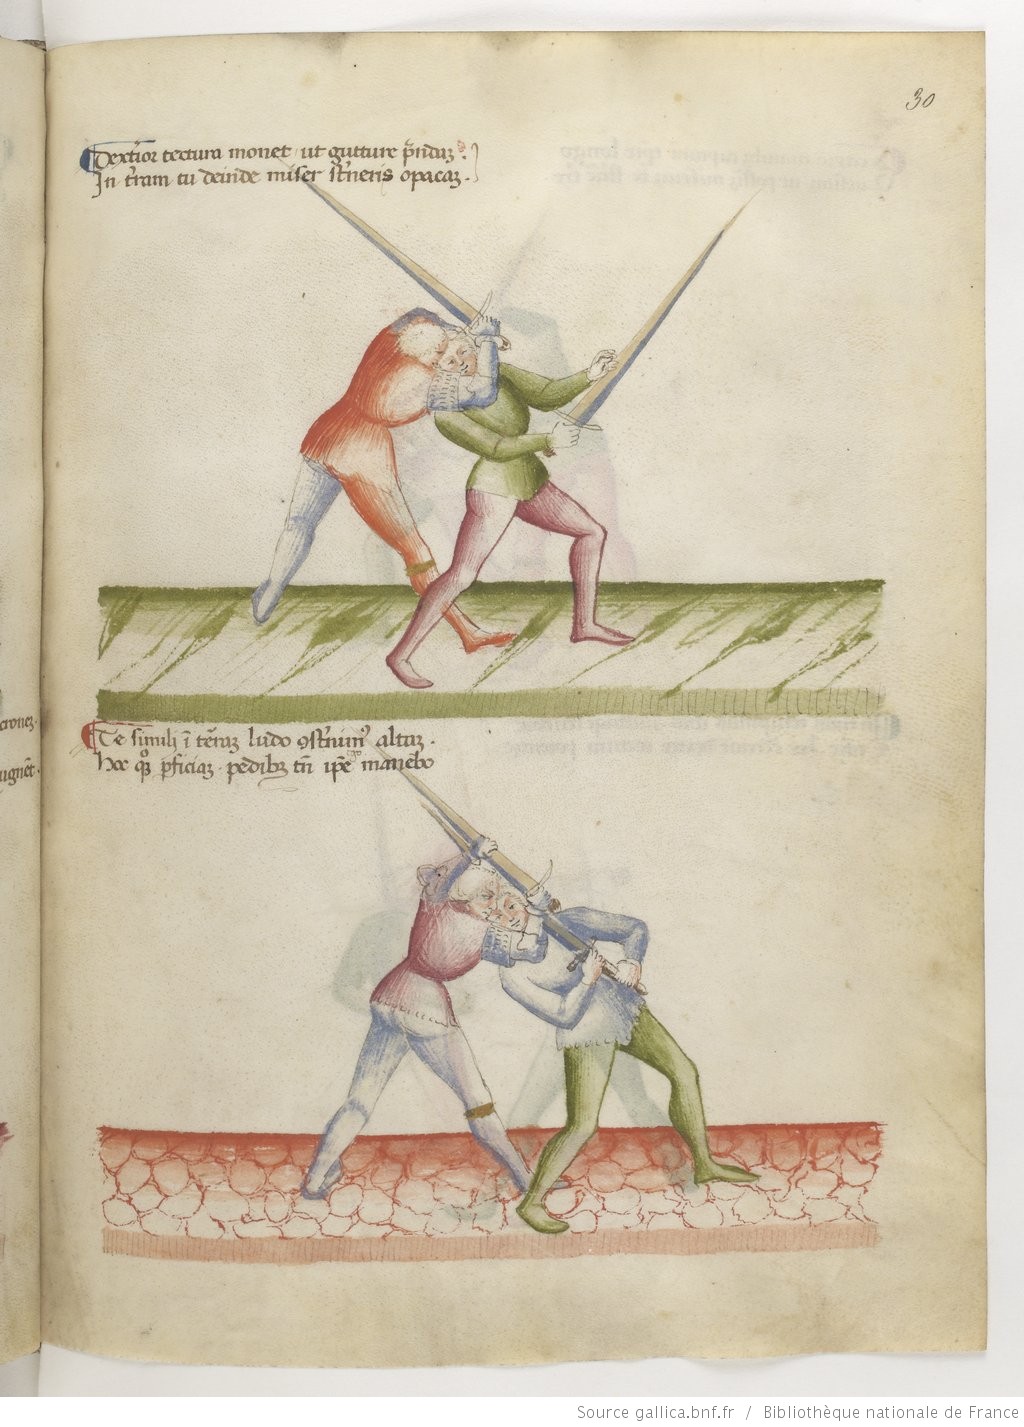 30
Dext'ior textura monet ut gutture p̄ndaʒ.
In t'ram tu deinde miser st'neris opacaʒ.
Te simili ī t'eraʒ ludo ꝯst'nim' altaʒ.
Hoc p̲ficiaʒ pedibꝫ tn̄ ip̄e manebo
Source gallica.bnf.fr / Bibliothèque nationale de France